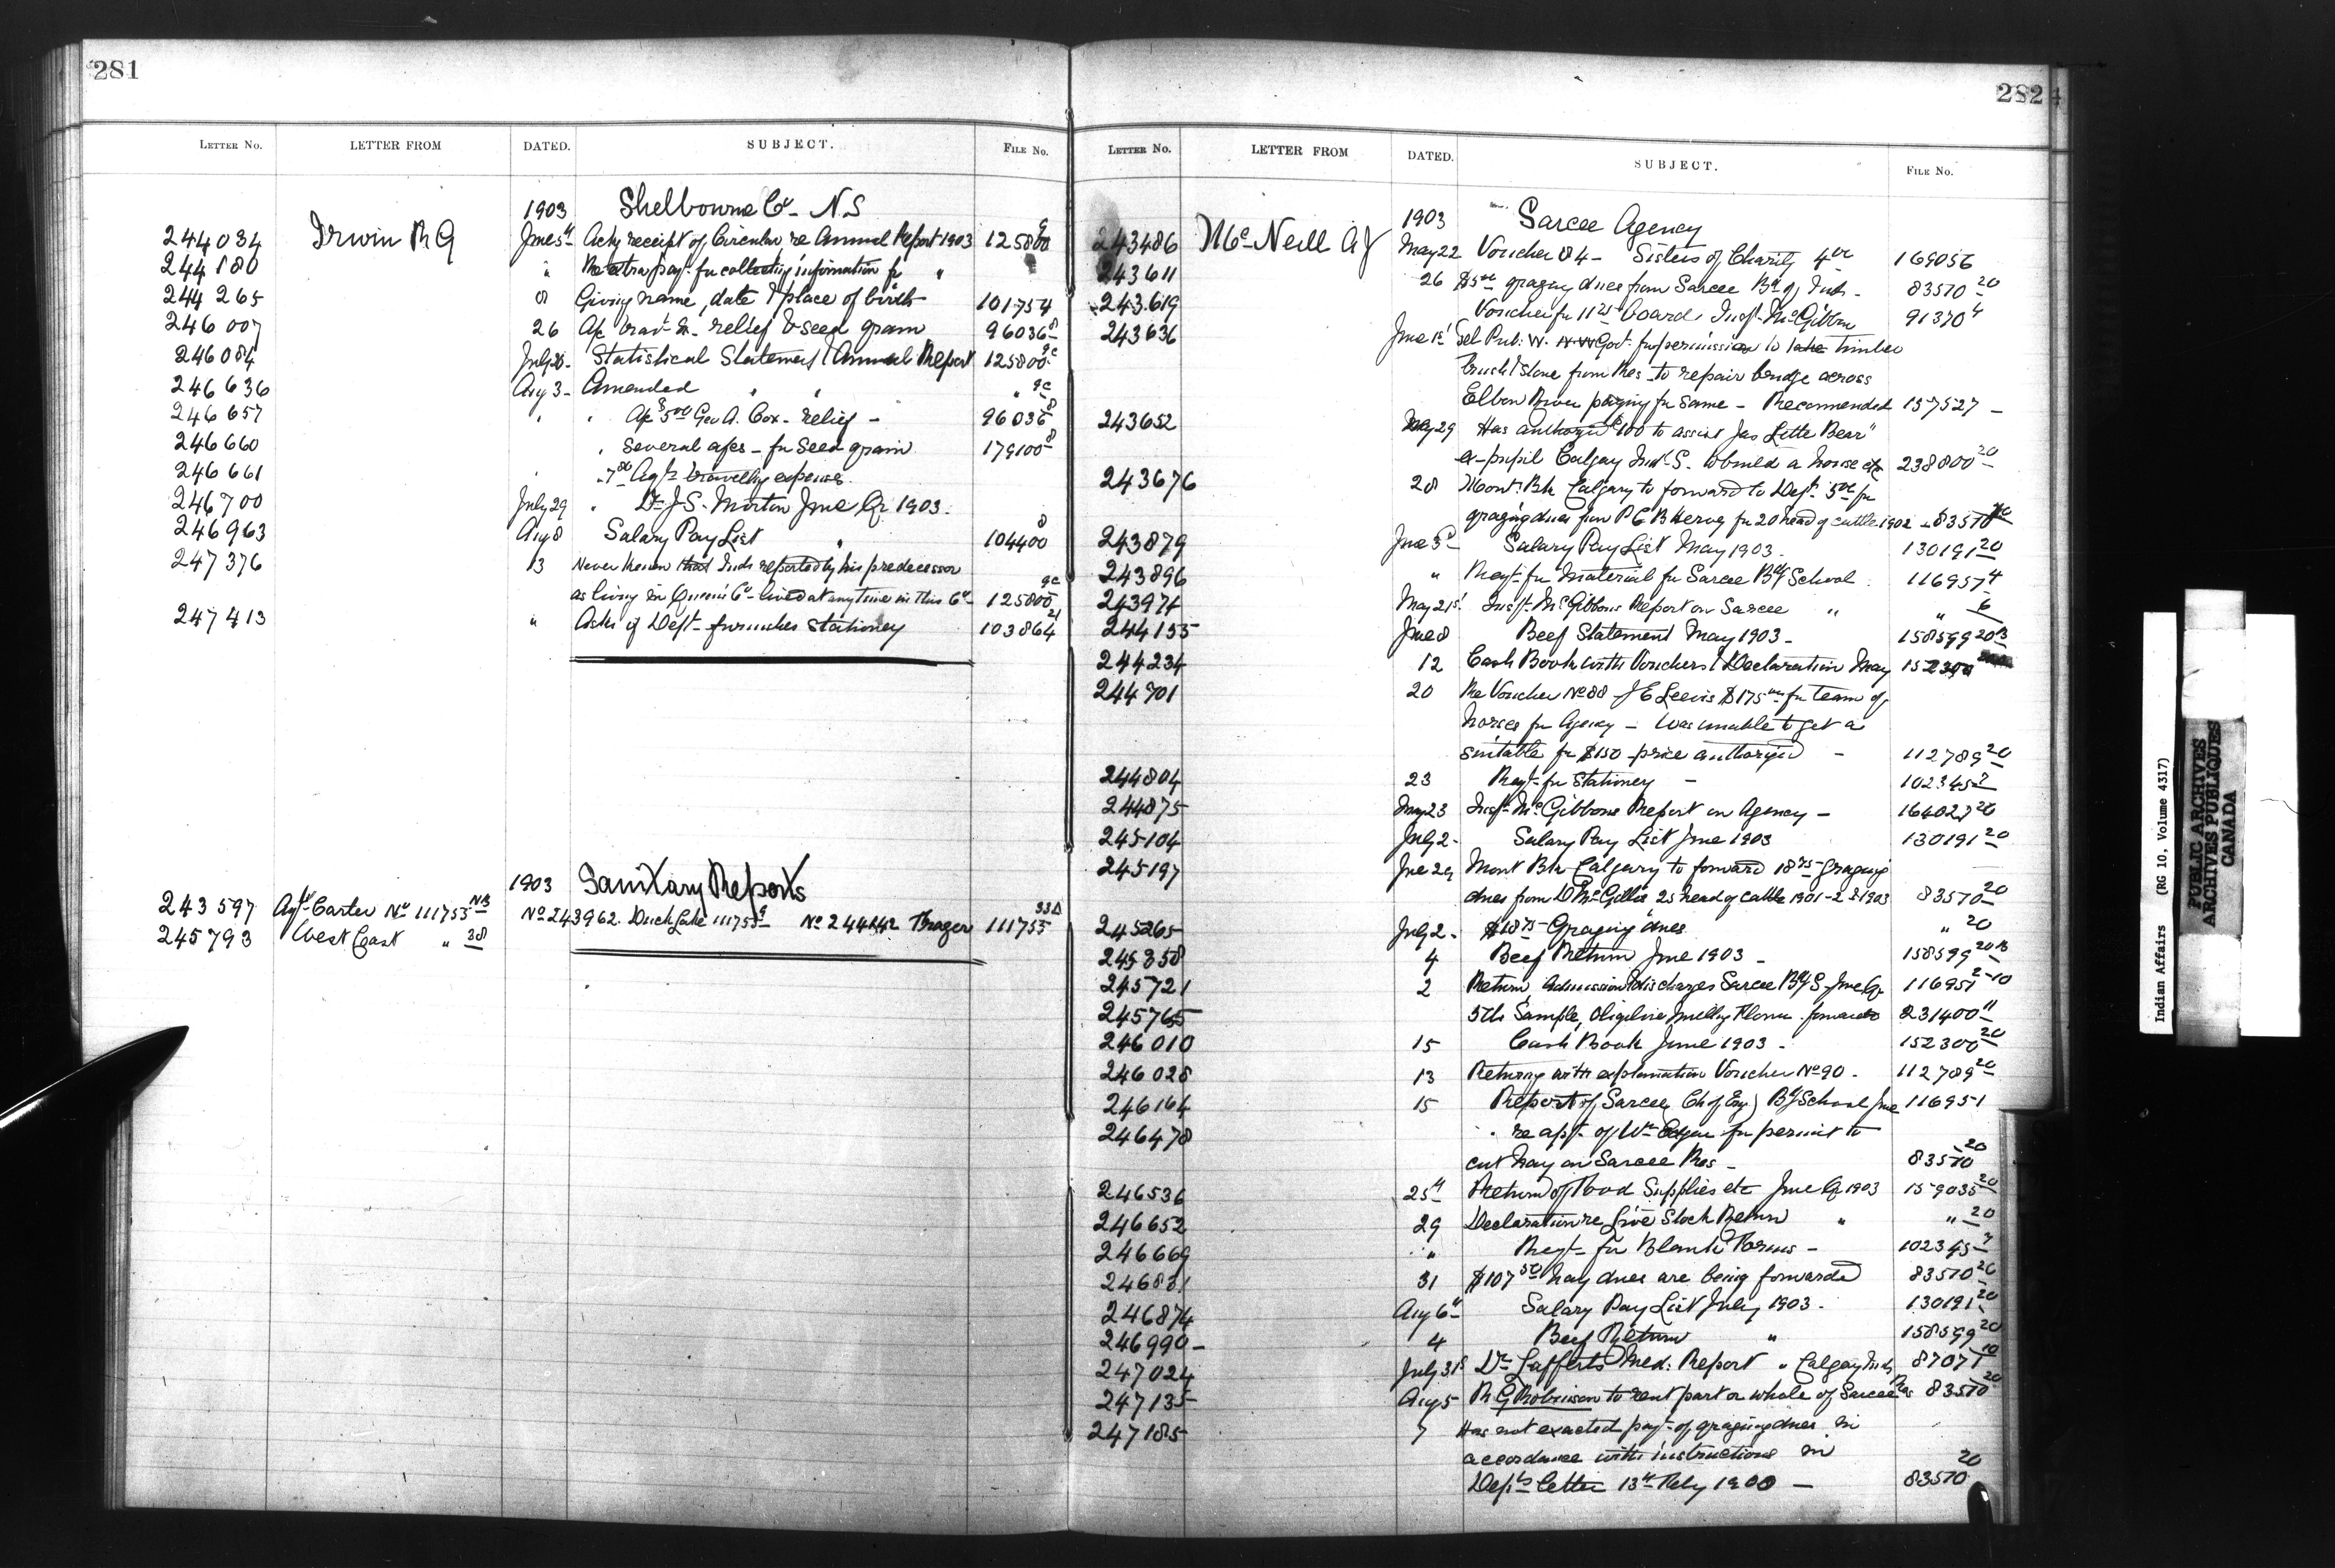 281
LETTER No. LETTER FROM DATED. SUBJECT. FILE No.
1903 Shelbourne Co - N.S
244034 Irwin R G June 5th Ackg receipt of Circular re Annual Report 1903 125800
244180 " Re extra payt. for collecting information fr "
244265 8 Giving name, date & place of birth 101754
246007 26 relief & seed grain 96036-8
246084 July 28- Statistical Statement & Annual Report 125800 9c
246636 Aug 3- Amended " " " 9c
246657 " " 5.00 Geo A. Cox - relief - 96036 8
246660 " Several a/cs - for Seed grain 179100 8
246661 " 7.80 Agts travelling expenses.
246700 July 29 " Dr J.S. Morton June Qr 1903.
246963 Aug 8 Salary Pay List " 104400 8
247376 13 Never known that Inds reported by his predecessor
as living in Queen's Co - lived at any time in this Co - 125800 9c
247413 " Asks if Dept - furnishes Stationery 103864 21
1903 Sanitary Reports
243597 Agt Carter No 111755 NB No 243962. Duck Lake 111755 9 No 244142 Fraser 111755 33A
245793 West Coast " 38
282
LETTER No. LETTER FROM DATED. SUBJECT. FILE No.
1903 Sarcee Agency
243486 McNeill A J May 22 Voucher 84 - Sisters of Charity 169056
243611 26 $5.00 grazing dues from Sarcee Bd of Inds - 83570 20
243619 Voucher for 11.25 board, Insp. McGibbon 91370 4
243636 June 1st Pub. W. N.W. Govt. for permission to take timber
brush & stone from Res - to repair bridge across
Elbow River paying for same - Recommended 157527 -
243652 May 29 Has authorized $100 to assist Jas Little Bear"
ex-pupil Calgary Ind. S. to build a house etc 238800 20
243676 28 Mont. Bk Calgary to forward to Dept. 5.00 for
grazing dues from P.C.B. Herve for 20 head of cattle 1902 - 83570
243879 June 3rd Salary Pay List May 1903. 130191 20
243896 " Reqt - for material for Sarcee Bdg School. 116957 4
243974 May 21st Inspr. McGibbons Report on Sarcee " " 6
244155 June 8 Beef Statement May 1903 - 158599 20B
244234 12 Cash Book with Vouchers & Declaration May 152300
244701 20 Re Voucher No 88 - J E Leevis $175.00 for team of
horses for Agency - Was unable to get a
suitable for $150 - price authorized - 112789 20
244804 23 Reqt - for Stationery - 102345 7
244875 May 23 Inspr. McGibbons Report on Agency - 164027 20
245104 July 2- Salary Pay List June 1903 130191 20
245197 June 29 Mont Bk Calgary to forward 18.75 - Grazing
dues from D McGillis 25 head of cattle 1901-2 & 1903 83570 20
245265 July 2- $18.75 - Grazing dues " 20
245358 4 Beef Return June 1903 - 158599 20B
245721 2 Return, Admission & discharges Sarcee Bdg S - June Qr 116951 2-10
245765 5 lb Sample, Ogilvie Milling Flour. forwarded 231400 11
246010 15 Cash Book June 1903 - 152300 20
246028 13 Returning with explanation Voucher No 90 - 112789 20
246164 15 Report of Sarcee (Ch of Eng) Bdg School June 116951
246478 " re apt. of Wm for permit to
cut hay on Sarcee Res - 83570 20
246536 25th Return of Food Supplies etc June Qr 1903 159035 20
246652 29 Declaration re Live Stock Return " " 20
246669 " Reqt - for Blank Forms - 102345 7
246831 31 $107.50 hay dues are being forwarded 83570 20
246874 Aug 6th Salary Pay List July 1903 - 130191 20
246990 - 4 Beef Return " 158599 20
247024 July 31st Dr Lafferts Med. Report " Calgary Inds 87077 10
247135 Aug 5 R G Robinson to rent part or whole of Sarcee Res 83570 20
247185 7 Has not exacted payt. of grazing dues in
accordance with instructions in
Dept's letter 13th Feby 1900 - 83570 20
Indian Affairs (RG 10, Volume 4317)
PUBLIC ARCHIVES
ARCHIVES PUBLIQUES
CANADA